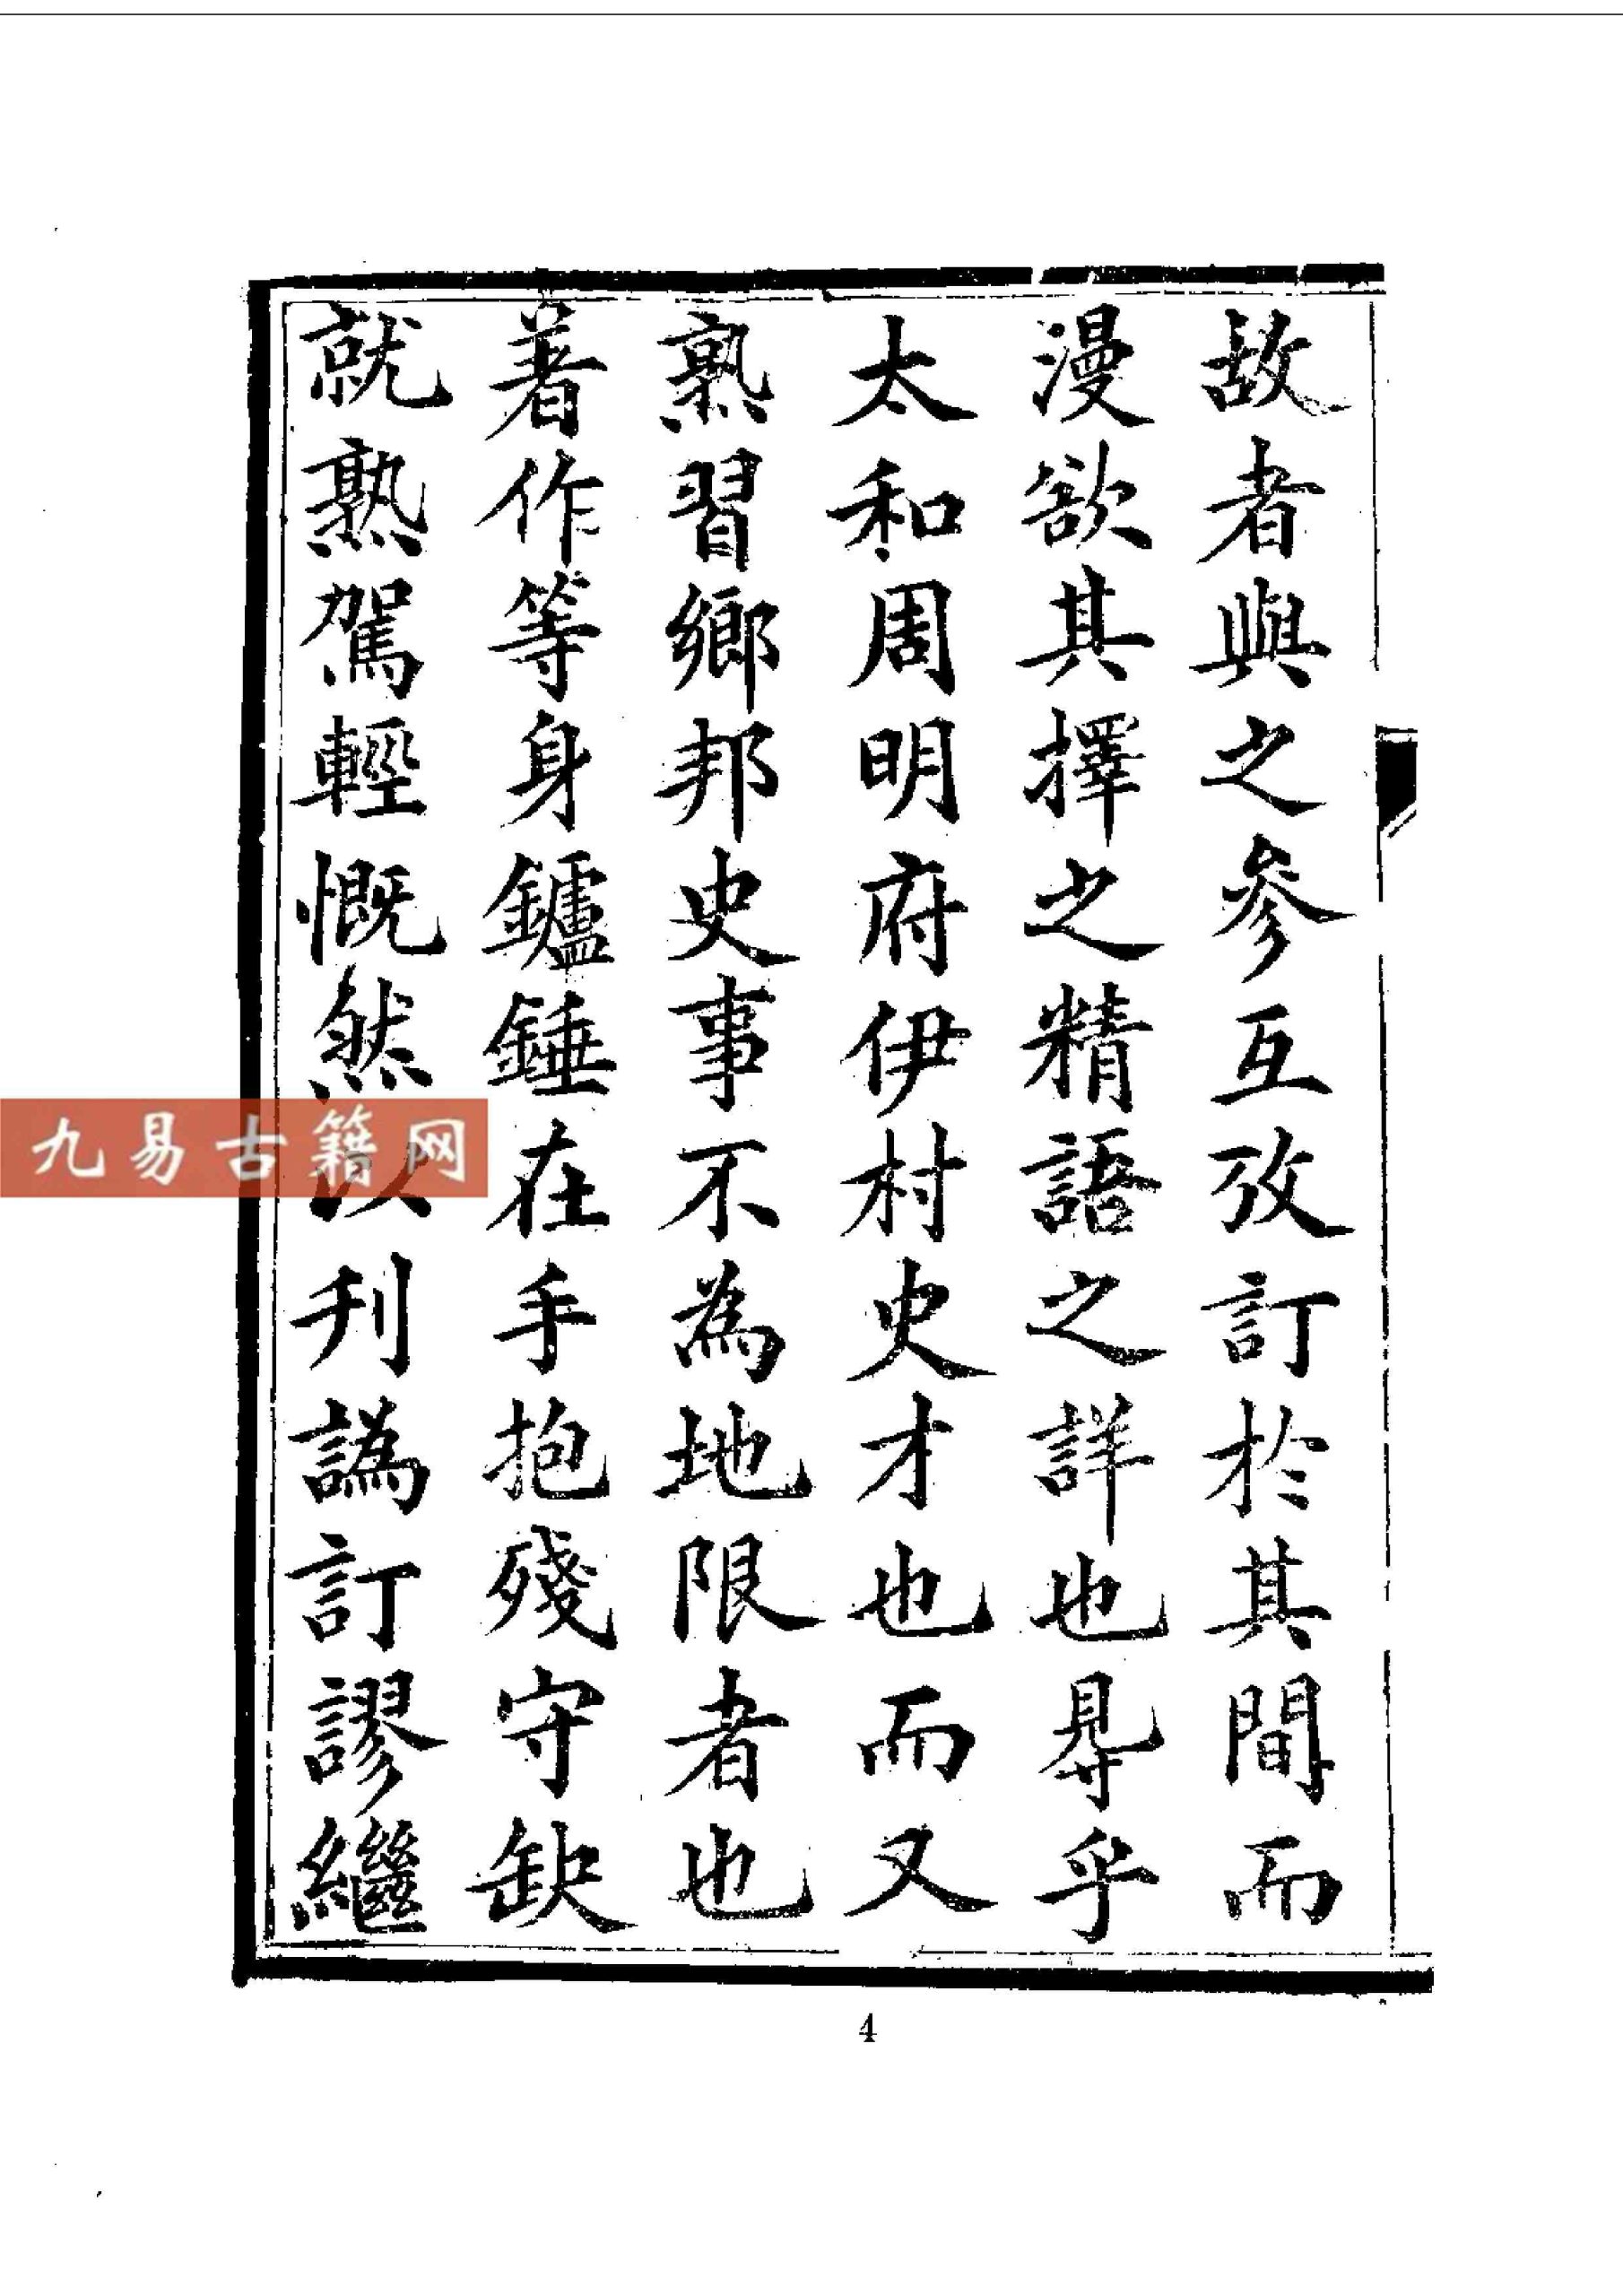 故者與之參互攷訂於其間而
漫欲其擇之精語之詳也㝵乎
太和周明府伊村史才也而又
熟習鄉邦史事不為地限者也
著作等身鑪錘在手抱殘守缺
就熟駕輕慨然以刋譌訂謬繼
九易古籍网
4